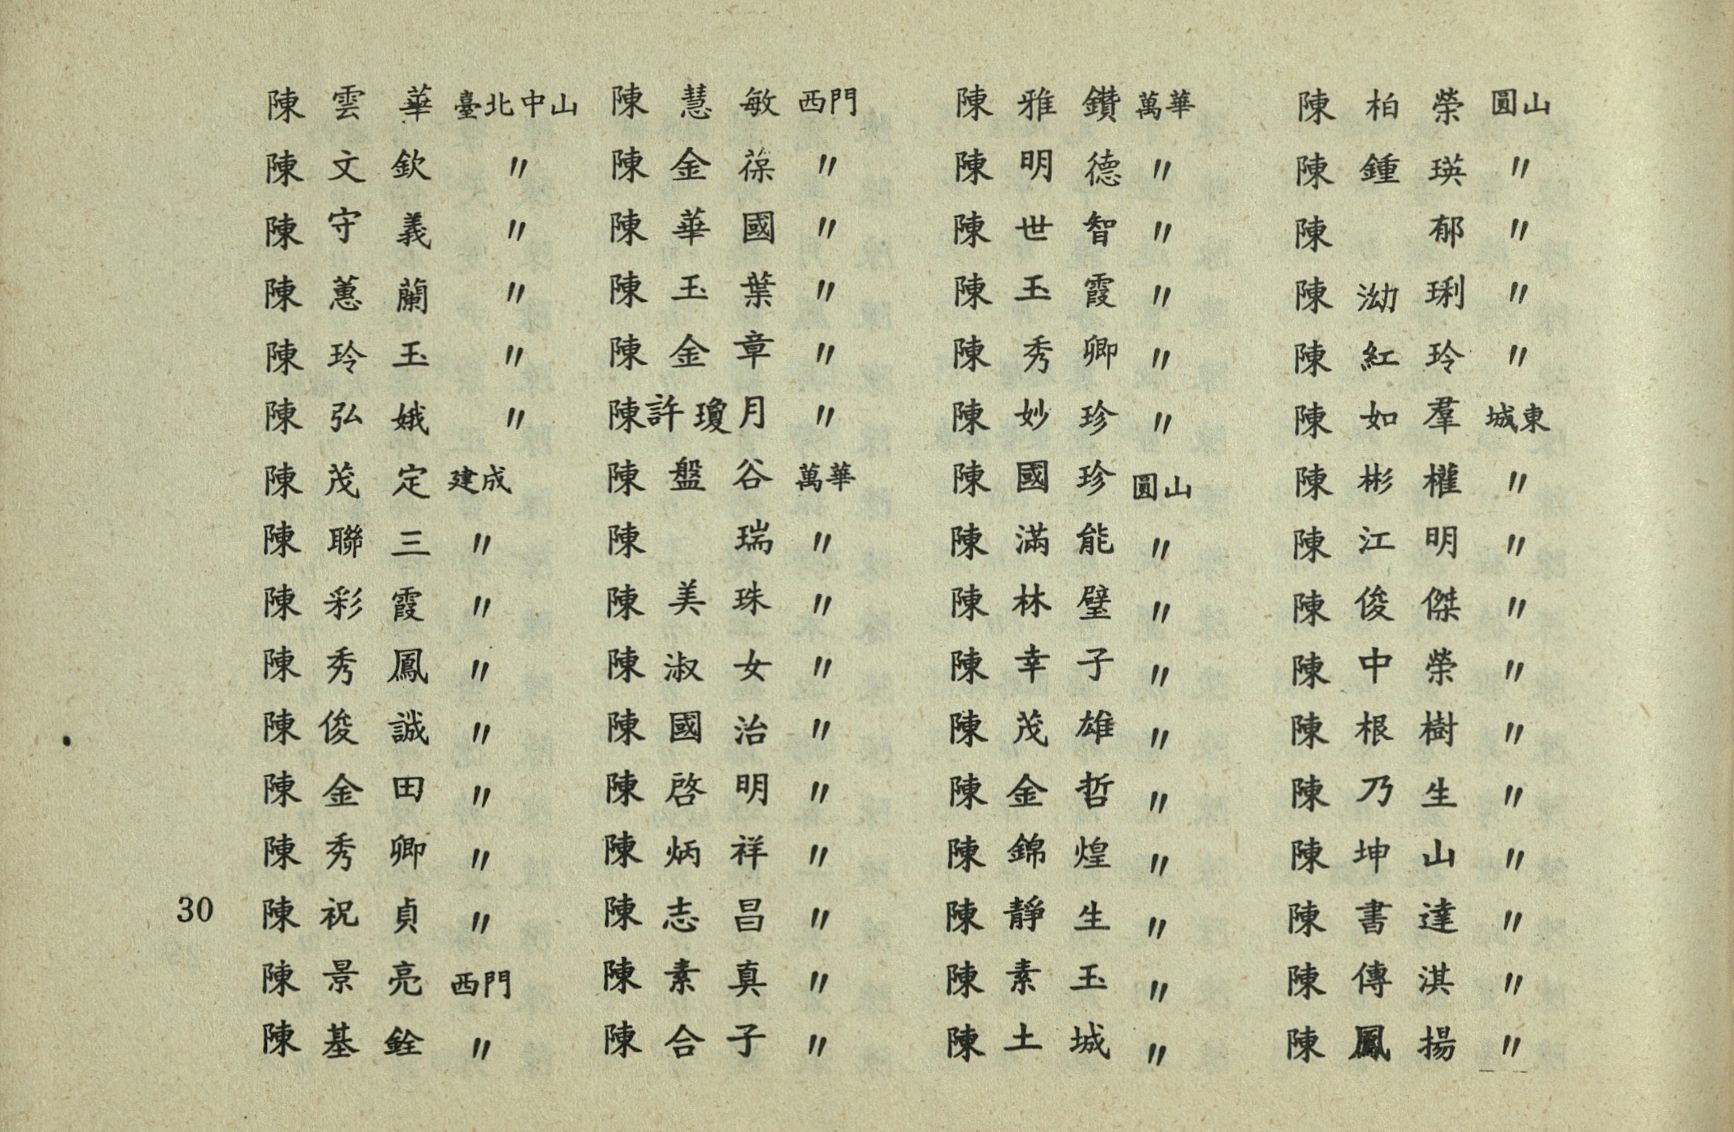 陳雲華 臺北中山
陳文欽 〃
陳守義 〃
陳蕙蘭 〃
陳玲玉 〃
陳弘娥 〃
陳茂定 建成
陳聯三 〃
陳彩霞 〃
陳秀鳳 〃
陳俊誠 〃
陳金田 〃
陳秀卿 〃
陳祝貞 〃
陳景亮 西門
陳基銓 〃
陳慧敏 西門
陳金葆 〃
陳華國 〃
陳玉葉 〃
陳金章 〃
陳許瓊月 〃
陳盤谷 萬華
陳瑞 〃
陳美珠 〃
陳淑女 〃
陳國治 〃
陳啓明 〃
陳炳祥 〃
陳志昌 〃
陳素真 〃
陳合子 〃
陳雅鑽 萬華
陳明德 〃
陳世智 〃
陳玉霞 〃
陳秀卿 〃
陳妙珍 〃
陳國珍 圓山
陳滿能 〃
陳林璧 〃
陳幸子 〃
陳茂雄 〃
陳金哲 〃
陳錦煌 〃
陳靜生 〃
陳素玉 〃
陳土城 〃
陳柏榮 圓山
陳鍾瑛 〃
陳郁 〃
陳泑琍 〃
陳紅玲 〃
陳如羣 城東
陳彬權 〃
陳江明 〃
陳俊傑 〃
陳中榮 〃
陳根樹 〃
陳乃生 〃
陳坤山 〃
陳書達 〃
陳傳淇 〃
陳鳳揚 〃
30